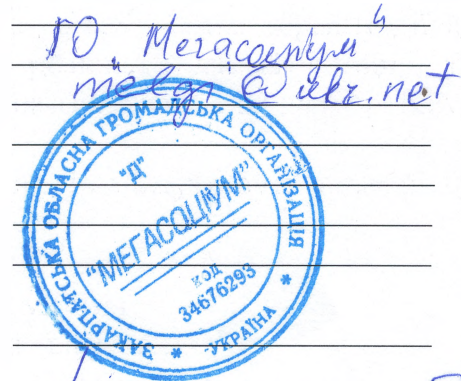 ГО "Мегасоціум"
@ukr.net
ЗАКАРПАТСЬКА ОБЛАСНА ГРОМАДСЬКА ОРГАНІЗАЦІЯ
"Д"
"МЕГАСОЦІУМ"
КОД
34676293
* УКРАЇНА *